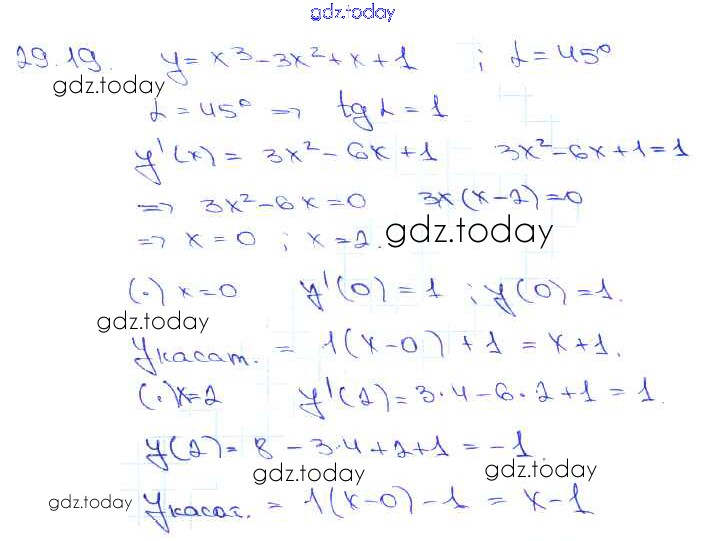 gdz.today
29.19. y = x³ - 3x² + x + 1 ; α = 45°
gdz.today
α = 45° => tg α = 1
y'(x) = 3x² - 6x + 1 3x² - 6x + 1 = 1
=> 3x² - 6x = 0 3x(x - 2) = 0
=> x = 0 ; x = 2. gdz.today
(·) x = 0 y'(0) = 1 ; y(0) = 1.
gdz.today
Yкасат. = 1(x - 0) + 1 = x + 1.
(·) x = 2 y'(2) = 3·4 - 6·2 + 1 = 1.
y(2) = 8 - 3·4 + 2 + 1 = -1.
gdz.today gdz.today
gdz.today Yкасат. = 1(x - 0) - 1 = x - 1